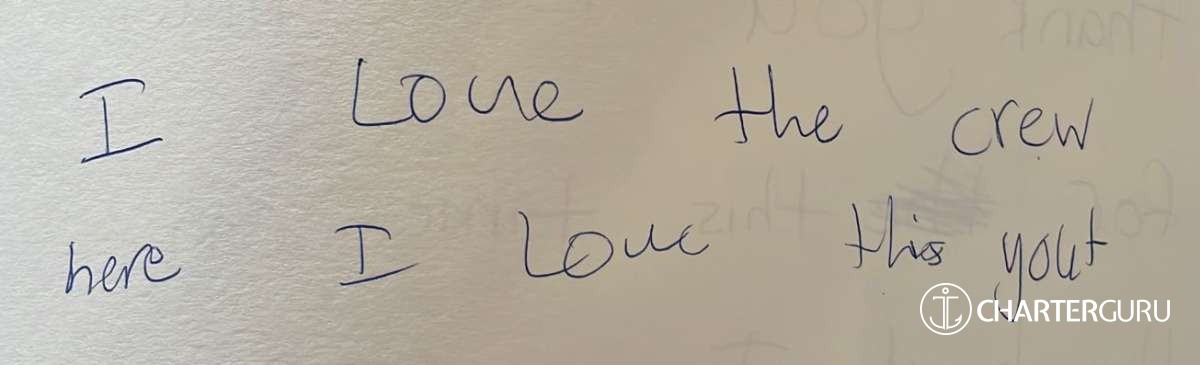 I Love the crew
here I Love this yout
CHARTERGURU